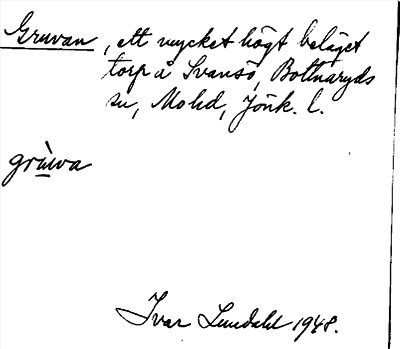 Gruvan, ett mycket högt beläget
torp å Svansö, Bottnaryds
sn, Mo hd, Jönk. l.
grùva
Ivar Lundahl 1948.